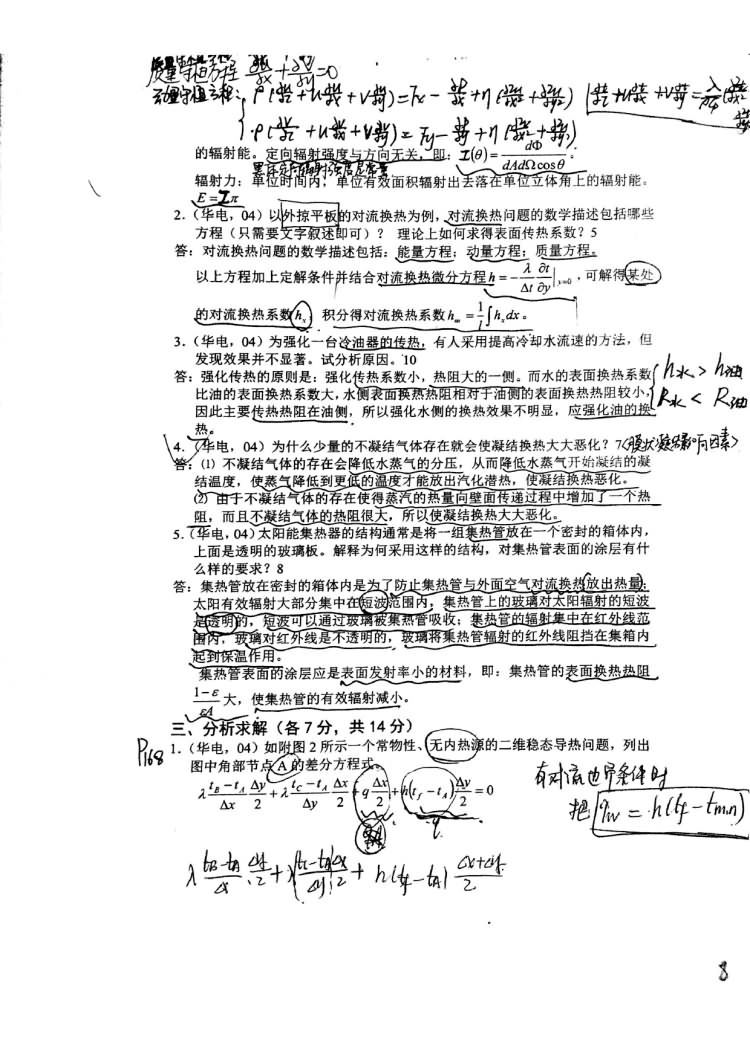 质量守恒方程 ∂u/∂x + ∂v/∂y = 0
动量守恒方程:
的辐射能。定向辐射强度与方向无关,即:I(θ) = dΦ/(dAdΩcosθ)。
辐射力:单位时间内,单位有效面积辐射出去落在单位立体角上的辐射能。
E = Iπ
2.(华电,04)以外掠平板的对流换热为例,对流换热问题的数学描述包括哪些
方程(只需要文字叙述即可)? 理论上如何求得表面传热系数?5
答:对流换热问题的数学描述包括:能量方程;动量方程;质量方程。
以上方程加上定解条件并结合对流换热微分方程 h = −(λ/Δt)(∂t/∂y)|y=0,可解得某处
的对流换热系数 hx,积分得对流换热系数 hm = (1/l)∫hxdx。
3.(华电,04)为强化一台冷油器的传热,有人采用提高冷却水流速的方法,但
发现效果并不显著。试分析原因。10
答:强化传热的原则是:强化传热系数小,热阻大的一侧。而水的表面换热系数
h水 > h油
比油的表面换热系数大,水侧表面换热热阻相对于油侧的表面换热热阻较小,
R水 < R油
因此主要传热热阻在油侧,所以强化水侧的换热效果不明显,应强化油的换
热。
4.(华电,04)为什么少量的不凝结气体存在就会使凝结换热大大恶化?7 <膜状凝结影响因素>
答:(1) 不凝结气体的存在会降低水蒸气的分压,从而降低水蒸气开始凝结的凝
结温度,使蒸气降低到更低的温度才能放出汽化潜热,使凝结换热恶化。
(2) 由于不凝结气体的存在使得蒸汽的热量向壁面传递过程中增加了一个热
阻,而且不凝结气体的热阻很大,所以使凝结换热大大恶化。
5.(华电,04)太阳能集热器的结构通常是将一组集热管放在一个密封的箱体内,
上面是透明的玻璃板。解释为何采用这样的结构,对集热管表面的涂层有什
么样的要求?8
答:集热管放在密封的箱体内是为了防止集热管与外面空气对流换热放出热量;
太阳有效辐射大部分集中在短波范围内,集热管上的玻璃对太阳辐射的短波
是透明的,短波可以通过玻璃被集热管吸收;集热管的辐射集中在红外线范
围内,玻璃对红外线是不透明的,玻璃将集热管辐射的红外线阻挡在集箱内
起到保温作用。
集热管表面的涂层应是表面发射率小的材料,即:集热管的表面换热热阻
(1−ε)/(εA) 大,使集热管的有效辐射减小。
三、分析求解(各7分,共14分)
P168
1.(华电,04)如附图2所示一个常物性、无内热源的二维稳态导热问题,列出
图中角部节点 A 的差分方程式。
λ (tB−tA)/Δx Δy/2 + λ (tC−tA)/Δy Δx/2 + q Δx/2 + h(tf−tA) Δy/2 = 0
有对流边界条件时
把 qw = h(tf − tm,n)
λ (tB−tA)/Δx · Δy/2 + λ (tC−tA)/Δy Δx/2 + h(tf−tA) (Δx+Δy)/2
8